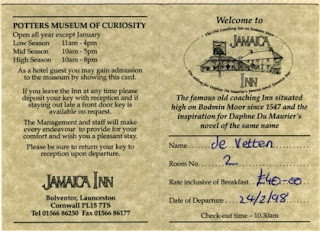 POTTERS MUSEUM OF CURIOSITY
Open all year except January
Low Season 11am - 4pm
Mid Season 10am - 5pm
High Season 10am - 8pm
As a hotel guest you may gain admission
to the museum by showing this card.
If you leave the Inn at any time please
deposit your key with reception and if
staying out late a front door key is
available on request.
The Management and staff will make
every endeavour to provide for your
comfort and wish you a pleasant stay.
Please be sure to return your key to
reception upon departure.
JAMAICA INN
Bolventor, Launceston
Cornwall PL15 7TS
Tel 01566 86250 Fax 01566 86177
Welcome to
The Old Coaching Inn on Bodmin Moor
JAMAICA
INN
The famous old coaching Inn situated
high on Bodmin Moor since 1547 and the
inspiration for Daphne Du Maurier's
novel of the same name
Name de Vetten
Room No. 2
Rate inclusive of Breakfast £40-00
Date of Departure 24/2/98
Check-out time – 10.30am